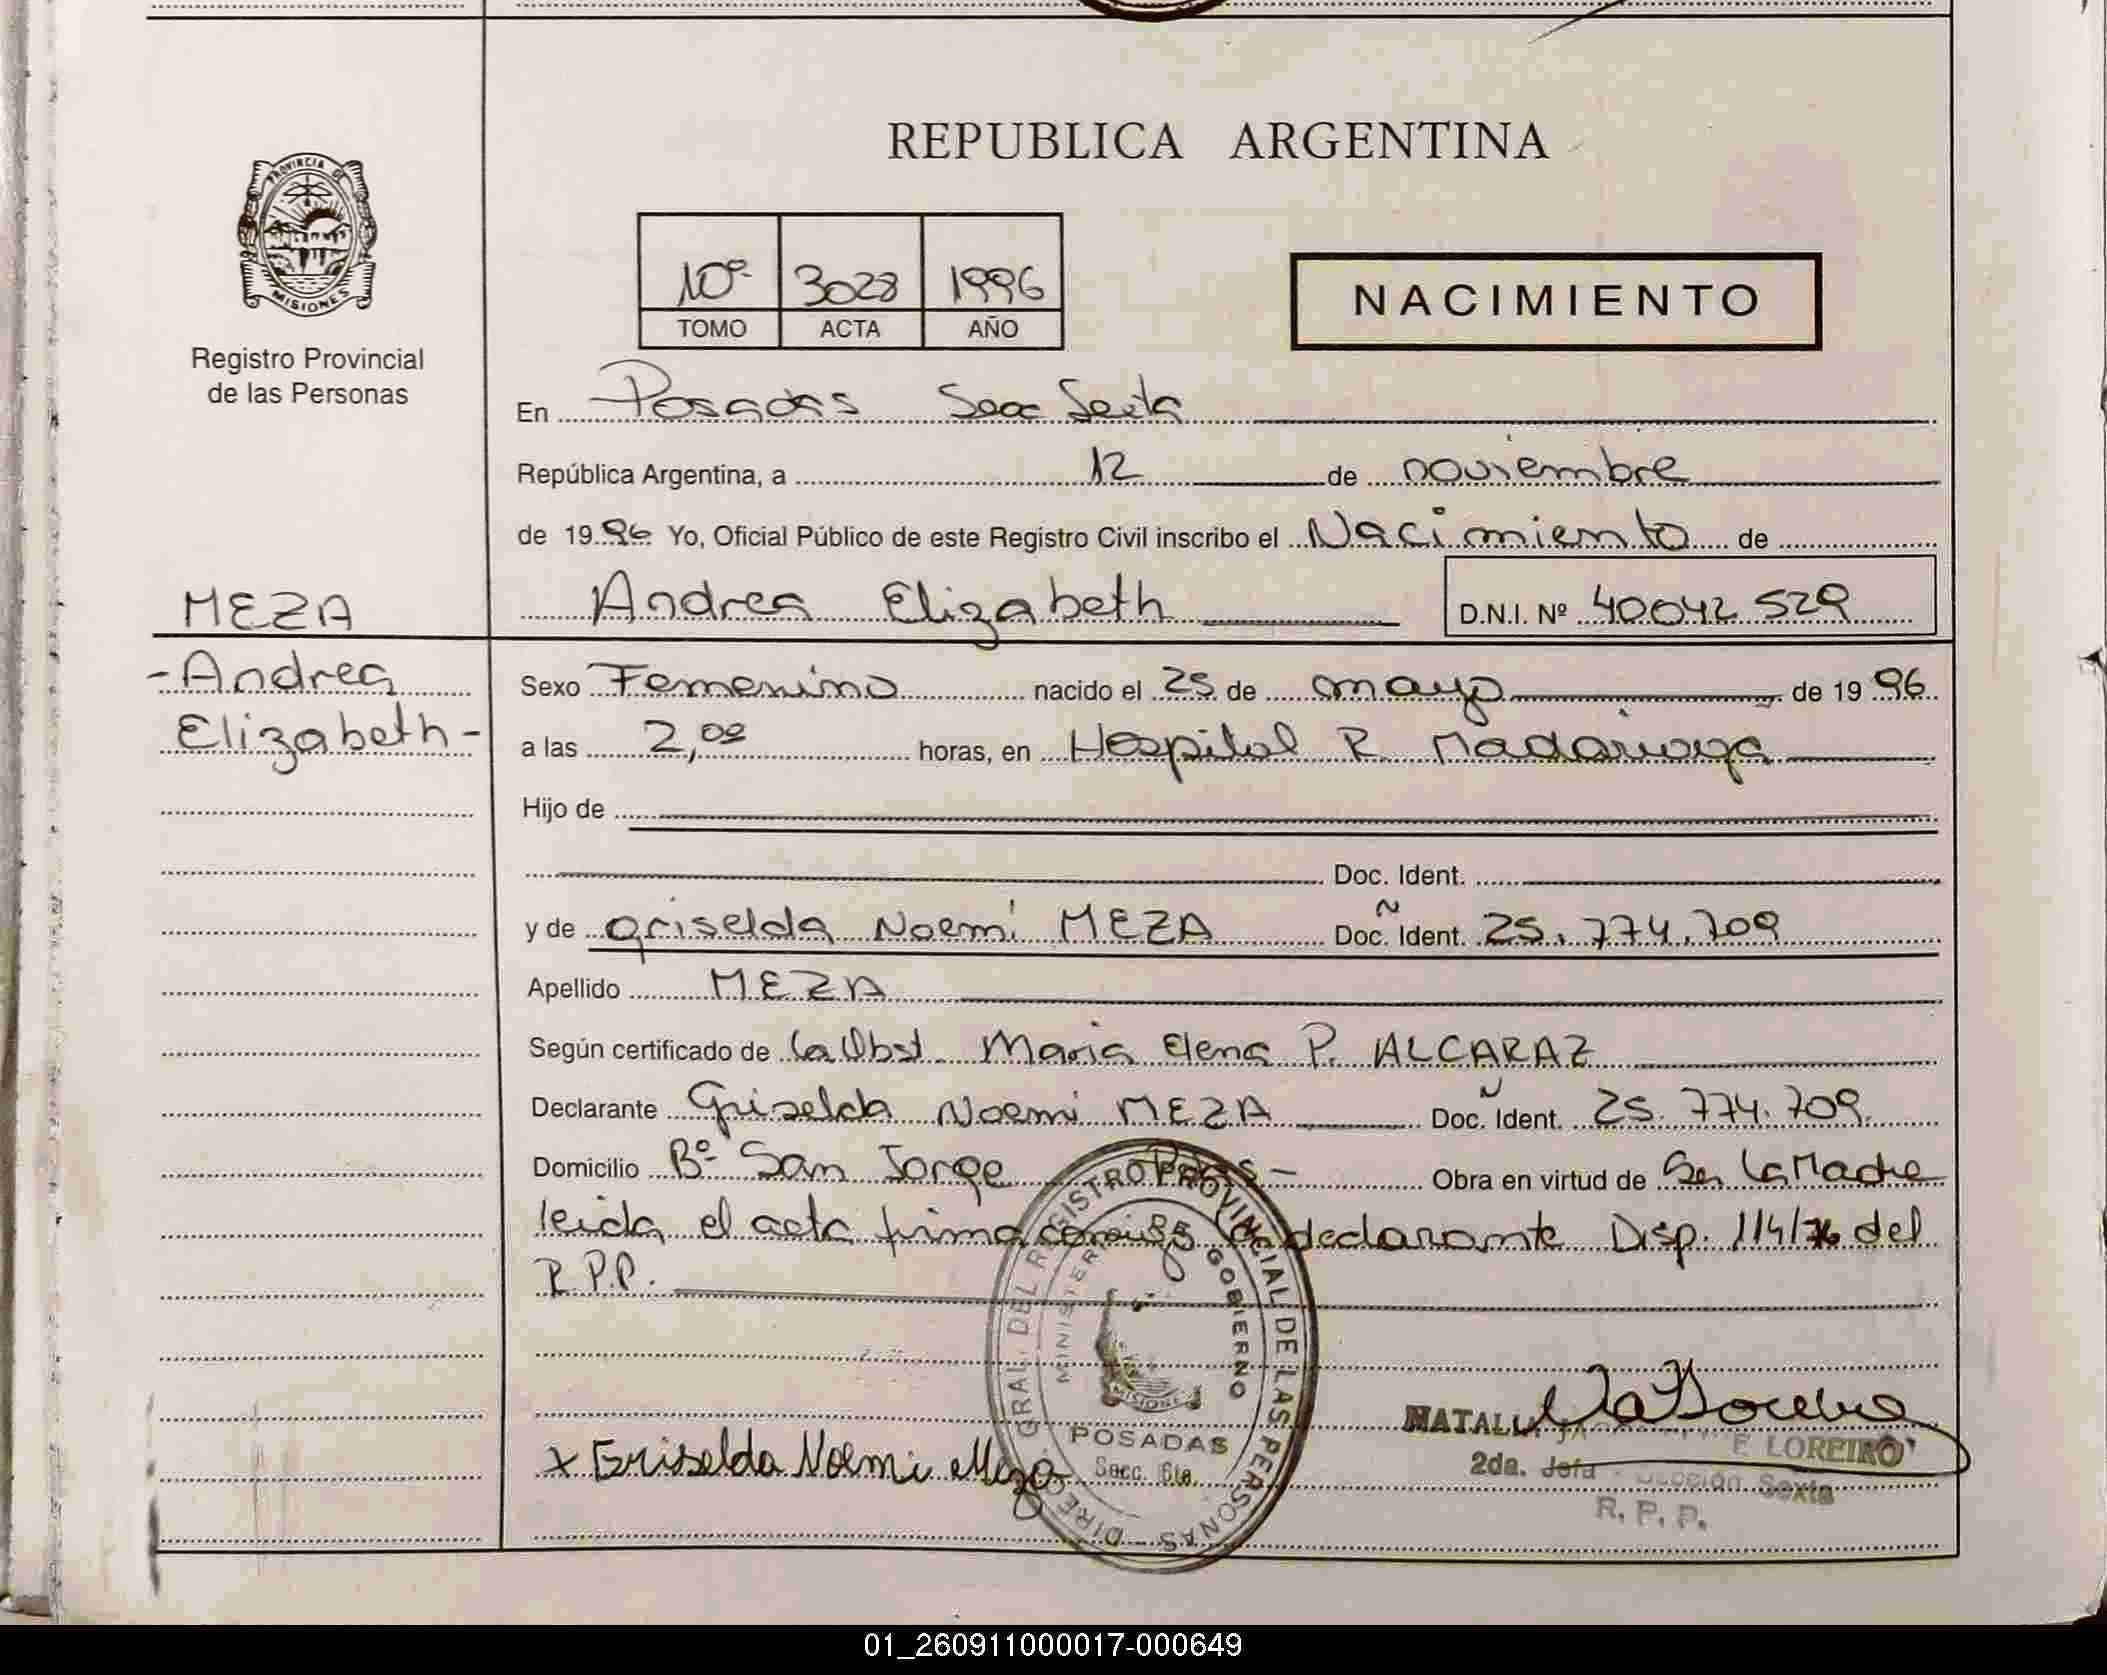 REPUBLICA ARGENTINA
PROVINCIA DE
MISIONES
Registro Provincial
de las Personas
10º 3028 1996
TOMO ACTA AÑO
NACIMIENTO
En Posadas Secc Sexta
República Argentina, a 12 de noviembre
de 1996 Yo, Oficial Público de este Registro Civil inscribo el Nacimiento de
MEZA
Andrea Elizabeth D.N.I. Nº 40042529
-Andrea
Elizabeth-
Sexo Femenino nacido el 25 de mayo de 1996
a las 2,00 horas, en Hospital R. Madariaga
Hijo de
Doc. Ident.
y de Griselda Noemi MEZA Doc. Ident. 25.774.709
Apellido MEZA
Según certificado de la Obst. Maria Elena P. ALCARAZ
Declarante Griselda Noemi MEZA Doc. Ident. 25.774.709
Domicilio Bº San Jorge Pdas- Obra en virtud de Ser la Madre
leida el acta firma conmigo la declarante Disp. 114/76 del
R.P.P.
DIREC. GRAL. DEL REGISTRO PROVINCIAL DE LAS PERSONAS
MINISTERIO DE GOBIERNO
MISIONES
POSADAS
Secc. 6ta.
x Griselda Noemi Meza
NATALI LOREIRO
2da. Jefa - Sección Sexta
R. P. P.
01_260911000017-000649